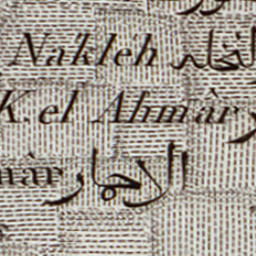 Nakléh النخله
K. el Ahmâr
màr الاحمار